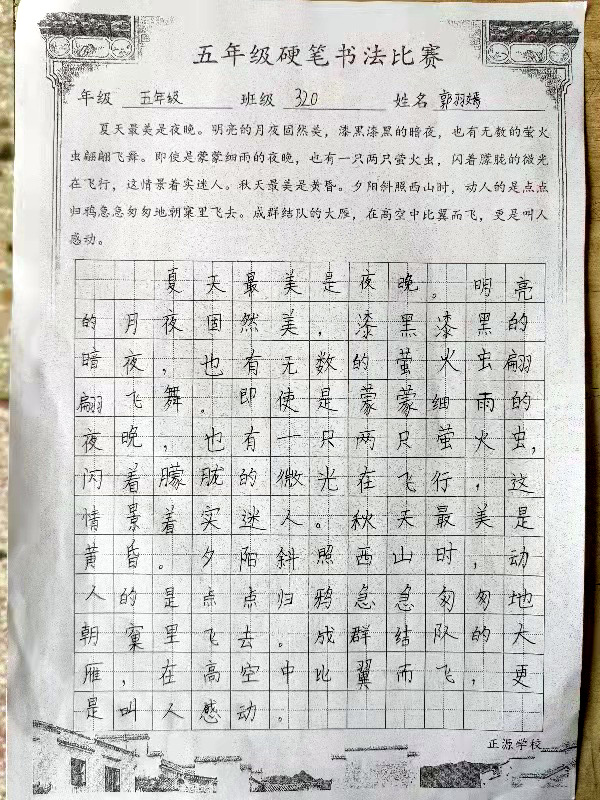 五年级硬笔书法比赛
年级 五年级 班级 320 姓名 郭羽嫣
夏天最美是夜晚。明亮的月夜固然美，漆黑漆黑的暗夜，也有无数的萤火
虫翩翩飞舞。即使是蒙蒙细雨的夜晚，也有一只两只萤火虫，闪着朦胧的微光
在飞行，这情景着实迷人。秋天最美是黄昏。夕阳斜照西山时，动人的是点点
归鸦急急匆匆地朝窠里飞去。成群结队的大雁，在高空中比翼而飞，更是叫人
感动。
夏天最美是夜晚。明亮
的月夜固然美，漆黑漆黑的
暗夜，也有无数的萤火虫翩
翩飞舞。即使是蒙蒙细雨的
夜晚，也有一只两只萤火虫，
闪着朦胧的微光在飞行，这
情景着实迷人。秋天最美是
黄昏。夕阳斜照西山时，动
人的是点点归鸦急急匆匆地
朝窠里飞去。成群结队的大
雁，在高空中比翼而飞，更
是叫人感动。
正源学校